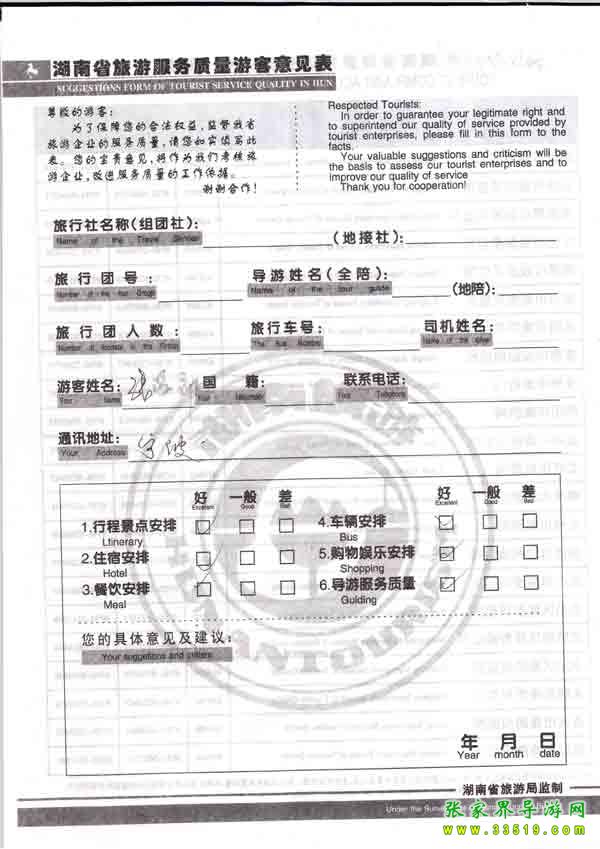 湖南省旅游服务质量游客意见表
SUGGESTIONS FORM OF TOURIST SERVICE QUALITY IN HUN
尊敬的游客:
为了保障您的合法权益,监督我省
旅游企业的服务质量,请您如实填写此
表。您的宝贵意见,将作为我们考核旅
游企业,改进服务质量的工作依据。
谢谢合作!
Respected Tourists:
In order to guarantee your legitimate right and
to superintend our quality of service provided by
tourist enterprises, please fill in this form to the
facts.
Your valuable suggestions and criticism will be
the basis to assess our tourist enterprises and to
improve our quality of service
Thank you for cooperation!
旅行社名称(组团社): (地接社):
Name of the Travel Services
旅行团号: 导游姓名(全陪): (地陪):
Number of the tour Group Name of the tour guide
旅行团人数: 旅行车号: 司机姓名:
The Bus Number Name of the driver
游客姓名: 国籍: 联系电话:
Your Name Your Nationality Your Telephone
通讯地址: 宁波
Your Address
好 一般 差 好 一般 差
Excellent Good Bad Excellent Good Bad
1.行程景点安排 4.车辆安排
Ltinerary Bus
2.住宿安排 5.购物娱乐安排
Hotel Shopping
3.餐饮安排 6.导游服务质量
Meal Guiding
您的具体意见及建议:
Your suggetions and critism
年 月 日
Year month date
湖南省旅游局监制
Under the
张家界导游网
www.33519.com